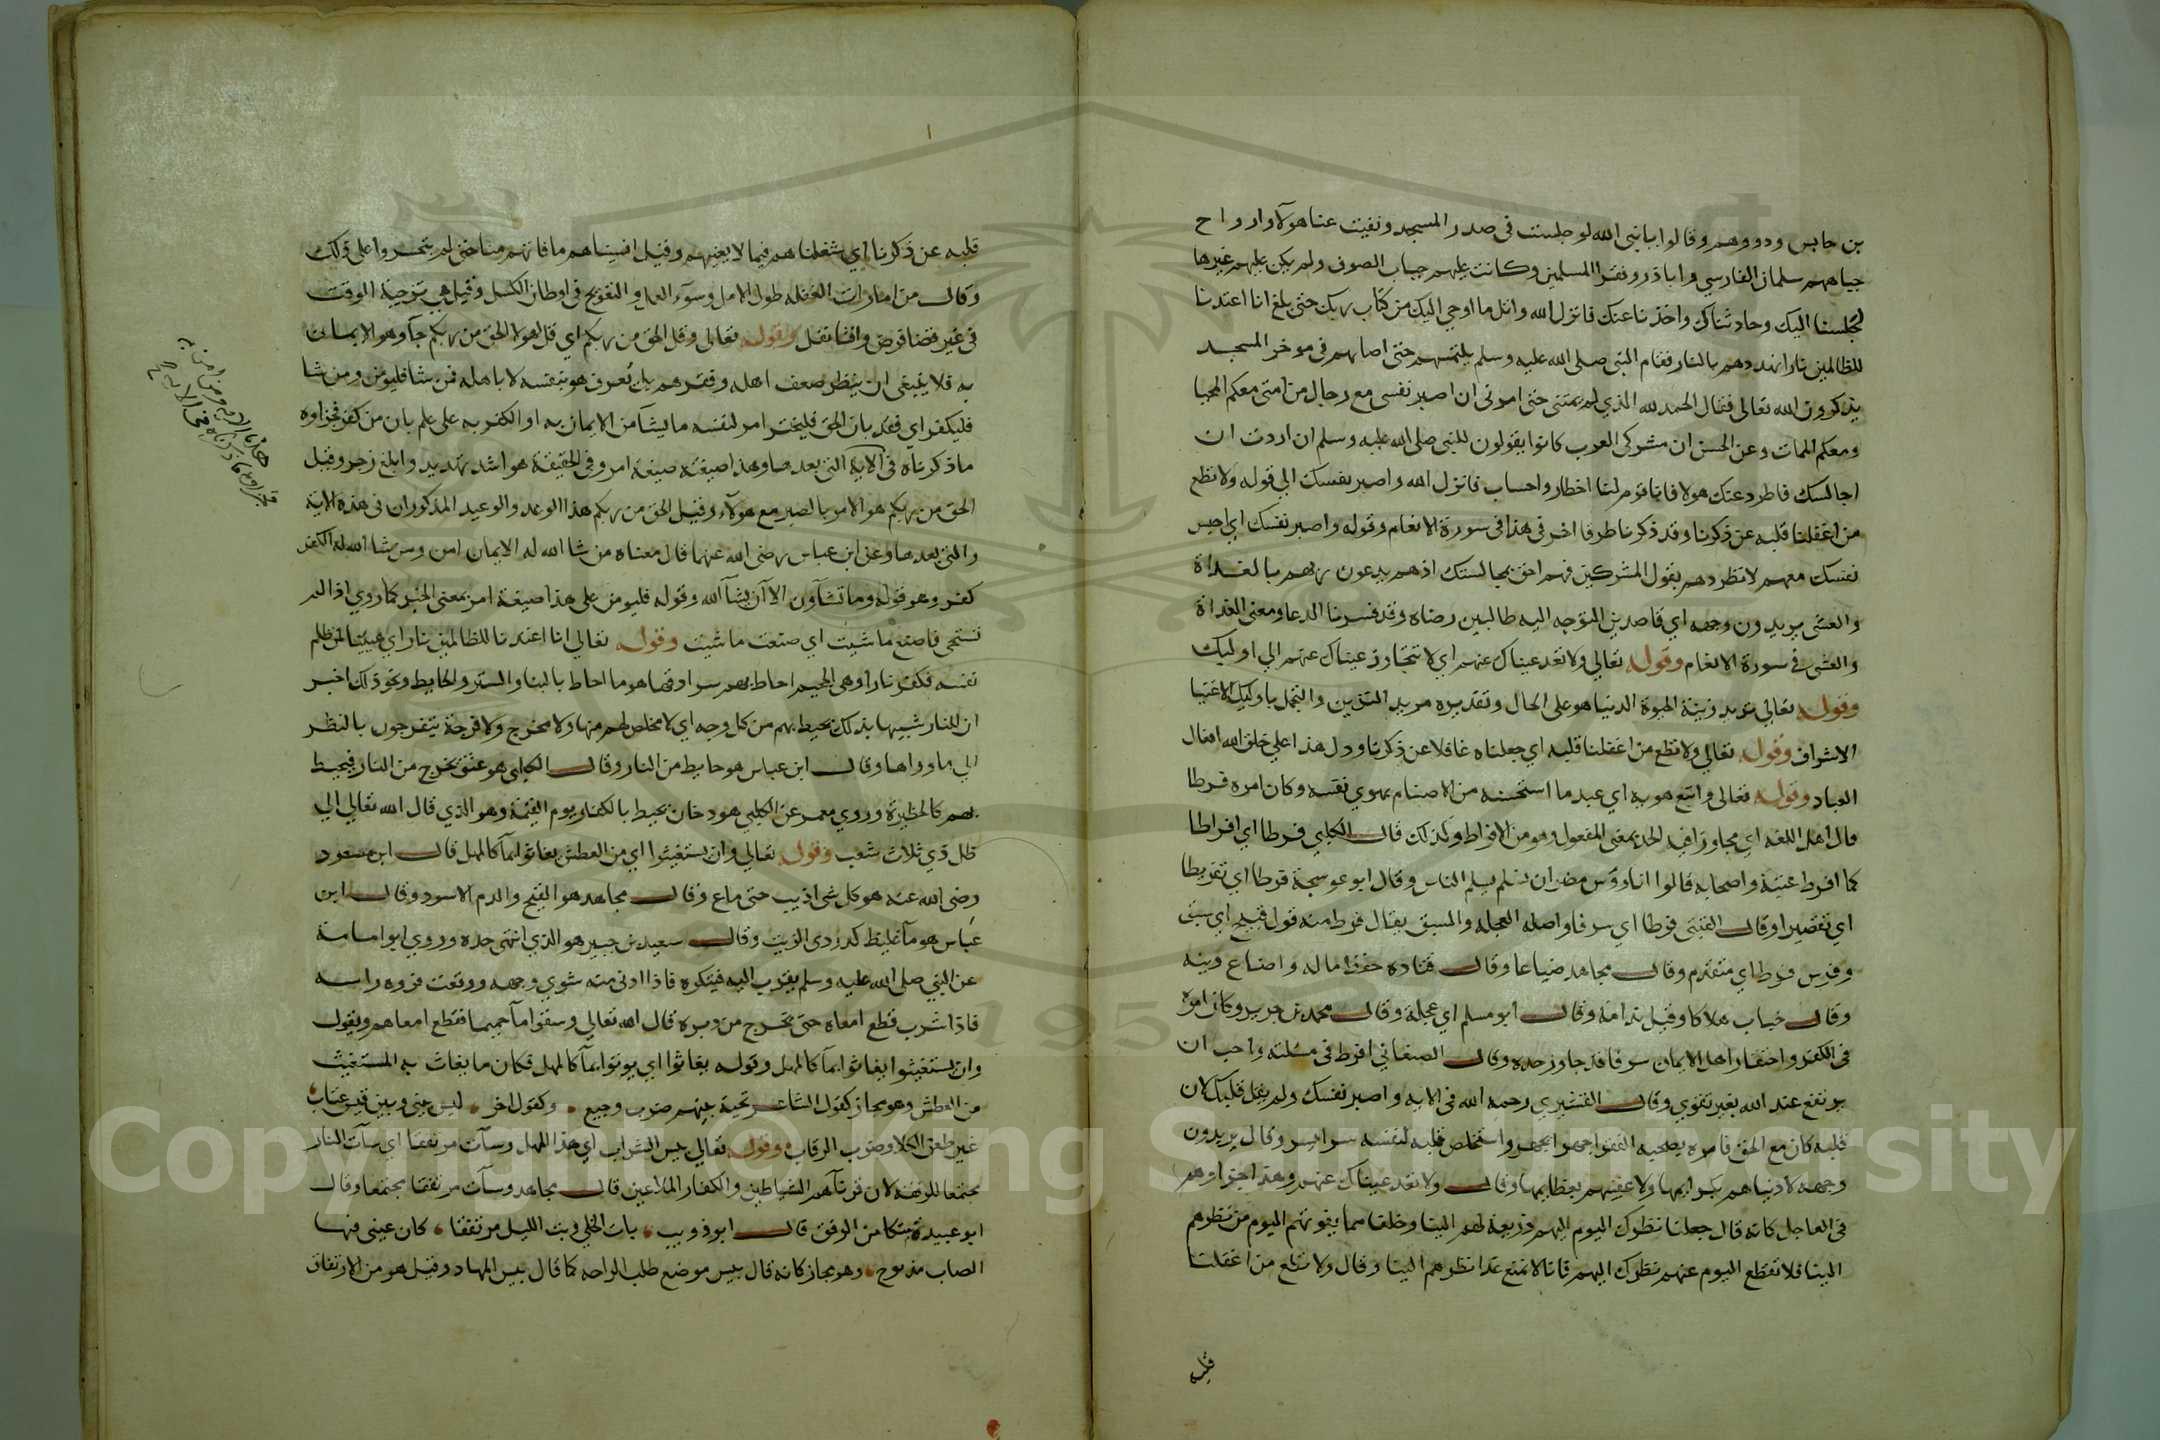 بن حابس وذووهم وقالوا يا نبي الله لو جلست في صدر المسجد ونفيت عنا هولآ وارواح
جباههم سلمان الفارسي وابا ذر وفقرا المسلمين وكانت عليهم جباب الصوف ولم يكن عليهم غيرها
لجلسنا اليك وحادثناك واخذنا عنك فانزل الله واتل ما اوحي اليك من كتاب ربك حتى بلغ انا اعتدنا
للظالمين نارا يهددهم بالنار فقام النبي صلى الله عليه وسلم يلتمسهم حتى اصابهم في موخر المسجد
يذكرون الله تعالى فقال الحمد لله الذي لم يمتني حتى امرني ان اصبر نفسي مع رجال من امتي معكم المحيا
ومعكم الممات وعن الحسن ان مشركي العرب كانوا يقولون للنبي صلى الله عليه وسلم ان اردت ان
اجالسك فاطرد عنك هولا فانا قوم لنا اخطار واحساب فانزل الله واصبر نفسك الى قوله ولا تطع
من اغفلنا قلبه عن ذكرنا وقد ذكرنا طرفا اخر في هذا في سورة الانعام وقوله واصبر نفسك اي احبس
نفسك معهم لا تطردهم بقول المشركين فهم احق بمجالستك اذ هم يدعون ربهم بالغداة
والعشي يريدون وجهه اي قاصدين التوجه اليه طالبين رضاه وقد فسرنا الدعا ومعنى الغداة
والعشي في سورة الانعام وقوله تعالى ولا تعد عيناك عنهم اي لا تتجاوز عيناك عنهم الى اوليك
وقوله تعالى تريد زينة الحيوة الدنيا هو على الحال وتقديره مريد التزين والتجمل باوليك الاغنيا
الاشراف وقوله تعالى ولا تطع من اغفلنا قلبه اي جعلناه غافلا عن ذكرنا ودل هذا على خلق الله افعال
العباد وقوله تعالى واتبع هويه اي عبد ما استحسنه من الاصنام بهوي نفسه وكان امره فرطا
قال اهل اللغة اي مجاوزا فيه الحد بمعنى المفعول وهو من الافراط وكذلك قال الكلبي فرطا اي افراطا
كما افرط عيينة واصحابه قالوا انا رووس مضر ان نسلم يسلم الناس وقال ابو عوسجة فرطا اي تفريطا
اي تقصيرا وقال القتبي فرطا اي سرفا واصله العجلة والسبق يقال فرط منه قول قبيح اي سبق
وفرس فرط اي متقدم وقال مجاهد ضياعا وقال قتادة حفظ ماله واضاع دينه
وقال خباب هلاكا وقيل ندامة وقال ابو مسلم اي عجلة وقال محمد بن جرير وكان امره
في الكفر واحتقار اهل الايمان سرفا قد جاوز حده وقال الصنعاني افرط في مسلته واحب ان
يرتفع عند الله بغير تقوي وقال القشيري رحمه الله في الاية واصبر نفسك ولم يقل قلبك لان
قلبه كان مع الحق فامره بصحبة الفقرا جهرا بجهر واستخلص قلبه لنفسه سرا بسر وقال يريدون
وجهه لا دنياهم ولا عقبيهم وقال ولا تعد عيناك عنهم وهذا جزاوهم
في العاجل كانه قال جعلنا نظرك اليوم اليهم ذريعة لهم الينا وخلفا مما يفوتهم اليوم من نظرهم
الينا فلا تقطع اليوم عنهم نظرك اليهم فانا لا نمنع غدا نظرهم الينا وقال ولا تطع من اغفلنا
قلبه
قلبه عن ذكرنا اي شغلناهم فيما لا يعنيهم وقيل انسيناهم ما فاتهم منا حتى لم يتحسروا على ذلك
وقال من امارات الغفلة طول الامل وسوء العمل والتعويج في اوطان الكسل وقيل هي تزجية الوقت
في غير قضا فرض وافشا نفل وقوله تعالى وقل الحق من ربكم اي قل هولا الحق من ربكم جآ وهو الايمان
به فلا ينبغي ان ينظر ضعف اهله وفقرهم بل يعرف هو بنفسه لا باهله فمن شا فليومن ومن شا
فليكفر اي فقد بان الحق فليختر امر لنفسه ما يشآ من الايمان به او الكفر به على علم بان من كفر فجزاوه
ما ذكرناه في الاية التي بعدها وهذا صيغته صيغة امر وفي الحقيقة هو اشد تهديد وابلغ زجر وقيل
الحق من ربكم هو الامر بالصبر مع هولآء وقيل الحق من ربكم هذا الوعد والوعيد المذكوران في هذه الاية
والتي بعدها وعن ابن عباس رضي الله عنهما قال معناه من شا الله له الايمان امن ومن شا الله له الكفر
كفر وهو قوله وما تشآون الا آن يشآ الله وقوله فليومن على هذا صيغة امر بمعنى الخبر كما روي اذا لم
تستحي فاصنع ما شيت اي صنعت ما شيت وقوله تعالى انا اعتدنا للظالمين نارا اي هيينا لمن ظلم
نفسه فكفر نارا وهي الجحيم احاط بهم سرادقها هو ما احاط بالبنا والستر والحايط ونحو ذلك اخبر
ان للنار شبيها بذلك يحيط بهم من كل وجه اي لا مخلص لهم منها ولا مخرج ولا فرجة يتفرجون بالنظر
الي ما وراها وقال ابن عباس هو حايط من النار وقال الكلبي هو عنق يخرج من النار فيحيط
بهم كالحظيرة وروي معمر عن الكلبي هو دخان يحيط بالكفار يوم القيمة وهو الذي قال الله تعالى الي
ظل ذي ثلاث شعب وقوله تعالى وان يستغيثوا اي من العطش يغاثوا بمآ كالمهل قال ابن مسعود
رضي الله عنه هو كل شي اذيب حتى ماع وقال مجاهد هو القيح والدم الاسود وقال ابن
عباس هو مآ غليظ كدردي الزيت وقال سعيد بن جبير هو الذي انتهى حره وروي ابو امامة
عن النبي صلى الله عليه وسلم يقرب اليه فيتكره فاذا ادني منه شوي وجهه ووقعت فروة راسه
فاذا شرب قطع امعاه حتى تخرج من دبره قال الله تعالى وسقوا مآ حميما فقطع امعاهم ويقول
وان يستغيثوا يغاثوا بمآ كالمهل وقوله يغاثوا اي يوتوا بمآ كالمهل فكان ما يغاث به المستغيث
من العطش وهو مجاز كقول الشاعر تحية بينهم ضرب وجيع وكقول اخر ليس بيني وبين قيس عتاب
غير طعن الكلا وضرب الرقاب وقوله تعالى بيس الشراب اي هذا المهل وسآت مرتفقا اي سآت النار
مجتمعا للرفقة لان قرناهم الشياطين والكفار الملاعين قال مجاهد وسآت مرتفقا مجتمعا وقال
ابو عبيدة متكا من الرفق قال ابو ذويب بات الخلي وبت الليل مرتفقا كان عيني فيها
الصاب مذبوح وهو مجاز كانه قال بيس موضع طلب الراحة كما قال بيس المهاد وقيل هو من الارتفاق